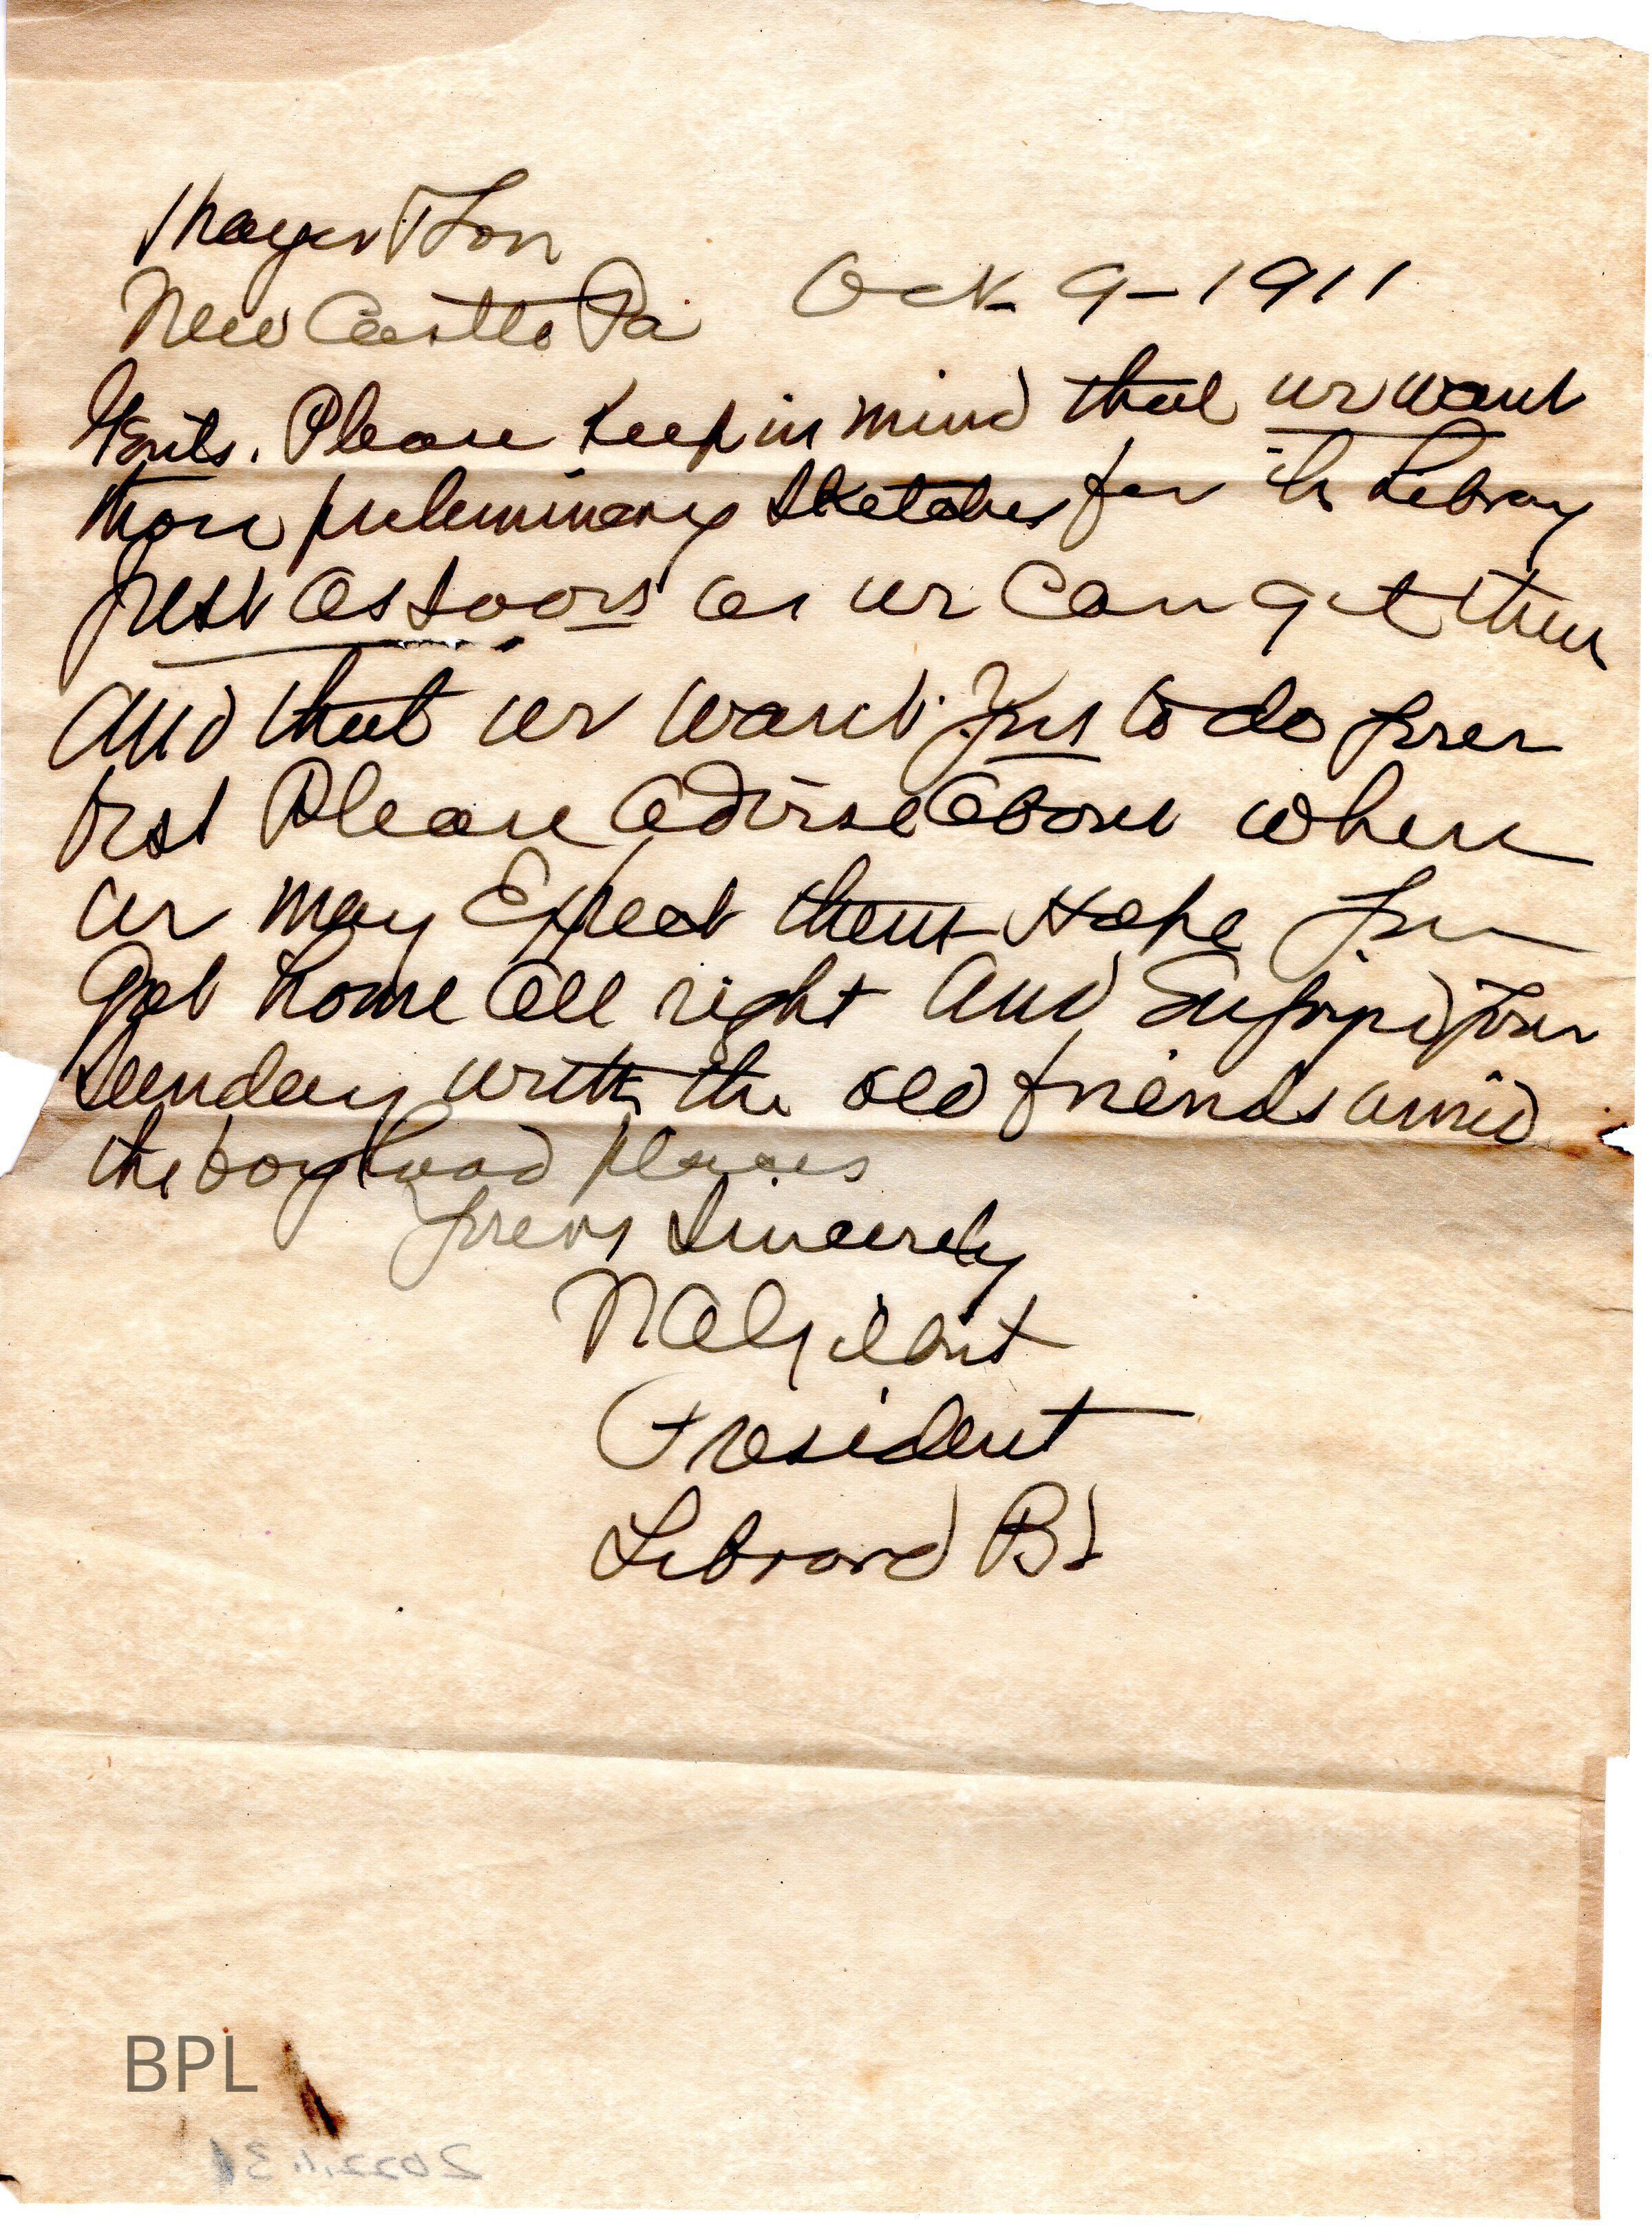 Thayer & Son
New Castle Pa Oct 9-1911
Gents. Please Keep in mind that we want
those preliminary sketches for the Library
Just as soon as we can get them
and that we want you to do your
best Please advise about when
we may Expect them Hope you
Got home all right and Enjoyed your
Sunday with the old friends amid
the boyhood places
yours sincerely
N A Gilbert
President
Library Bd
BPL
2022.11.31